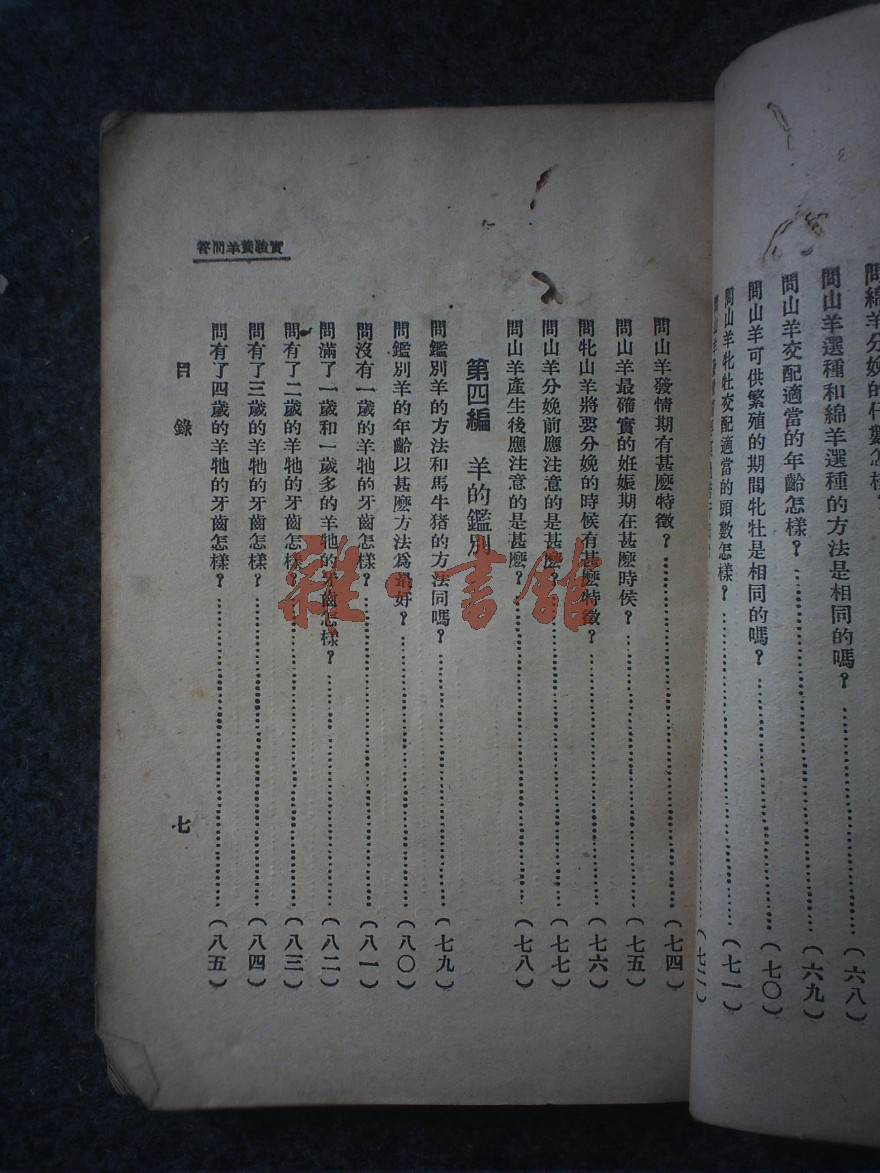 問綿羊分娩的仔數怎樣？
問山羊選種和綿羊選種的方法是相同的嗎？……(六八)
問山羊交配適當的年齡怎樣？……(六九)
問山羊可供繁殖的期間牝牡是相同的嗎？……(七〇)
問山羊牝牡交配適當的頭數怎樣？……(七一)
問山羊發情期有甚麼特徵？……(七四)
問山羊最確實的姙娠期在甚麼時候？……(七五)
問牝山羊將要分娩的時候有甚麼特徵？……(七六)
問山羊分娩前應注意的是甚麼？……(七七)
問山羊產生後應注意的是甚麼？……(七八)
第四編 羊的鑑別
問鑑別羊的方法和馬牛猪的方法同嗎？……(七九)
問鑑別羊的年齡以甚麼方法爲最好？……(八〇)
問沒有一歲的羊牠的牙齒怎樣？……(八一)
問滿了一歲和一歲多的羊牠的牙齒怎樣？……(八二)
問有了二歲的羊牠的牙齒怎樣？……(八三)
問有了三歲的羊牠的牙齒怎樣？……(八四)
問有了四歲的羊牠的牙齒怎樣？……(八五)
實驗養羊問答
目錄
七
雜·書館